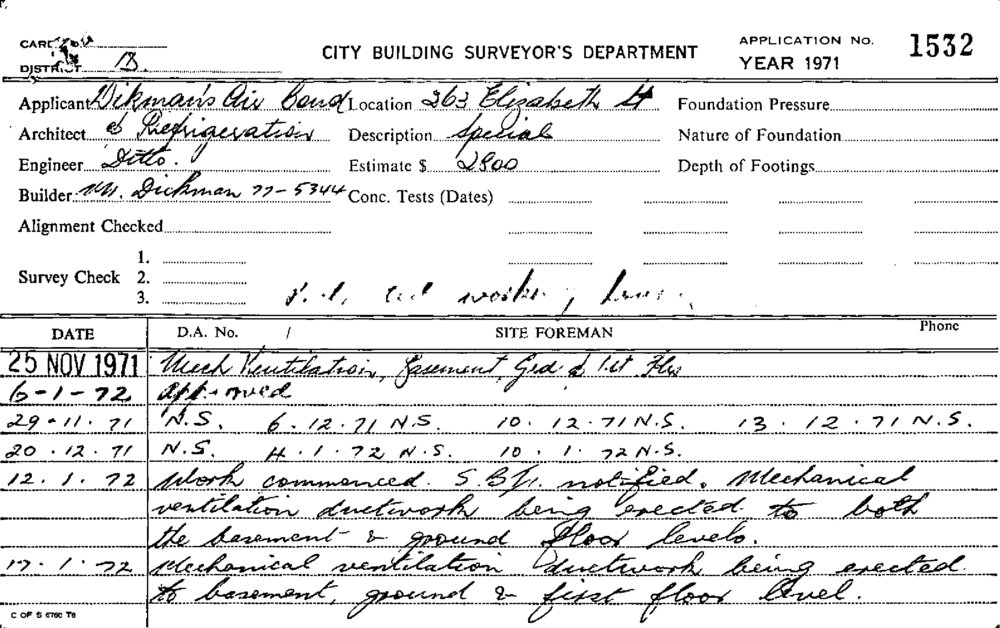 CARD No.
DISTRICT B.
CITY BUILDING SURVEYOR'S DEPARTMENT
APPLICATION No. 1532
YEAR 1971
Applicant Dikman's Air Cond Location 363 Elizabeth St Foundation Pressure
Architect & Refrigeration Description Special Nature of Foundation
Engineer Ditto. Estimate $ 2800 Depth of Footings
Builder Mr. Dickman 77-5344 Conc. Tests (Dates)
Alignment Checked
1.
Survey Check 2.
3.
DATE D.A. No. / SITE FOREMAN Phone
25 NOV 1971 Mech Ventilation, Basement, Grd & 1st Flrs
6-1-72 approved
29.11.71 N.S. 6.12.71 N.S. 10.12.71 N.S. 13.12.71 N.S.
20.12.71 N.S. 4.1.72 N.S. 10.1.72 N.S.
12.1.72 Work commenced. notified. Mechanical
ventilation ductwork being erected to both
the basement & ground floor levels.
17.1.72 Mechanical ventilation ductwork being erected
to basement, ground & first floor level.
C OF S 6760 T8